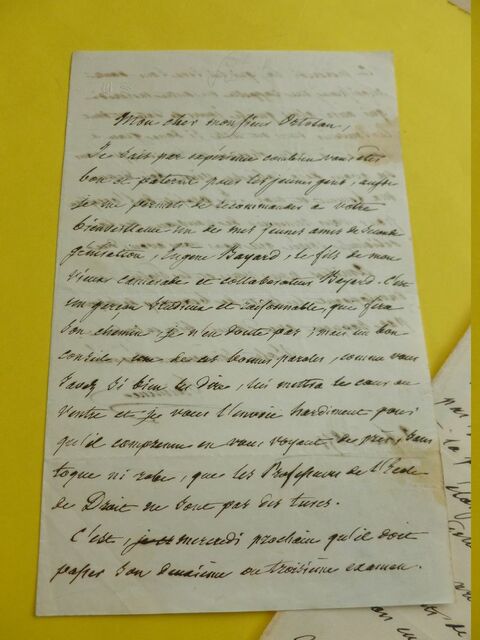 Mon cher monsieur Ortolan,
Je sais par expérience combien vous êtes
bon et paternel pour les jeunes gens, aussi
je me permets de recommander à votre
bienveillance un de mes jeunes amis de seconde
génération, Eugène Bayard, le fils de mon
vieux camarade et collaborateur Bayard. C'est
un garçon studieux et raisonnable, qui fera
son chemin je n'en doute pas, mais un bon
conseil, une de ces bonnes paroles, comme vous
savez si bien les dire, lui mettra le cœur au
ventre et je vous l'envoie hardiment pour
qu'il comprenne en vous voyant de près, sans
toque ni robe, que les Professeurs de l'Ecole
de Droit ne sont pas des turcs.
C'est, mercredi prochain qu'il doit
passer son deuxième ou troisième examen.